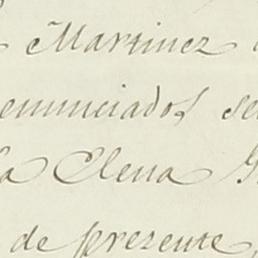 Martinez
enunciados se
la Elena G
de presente